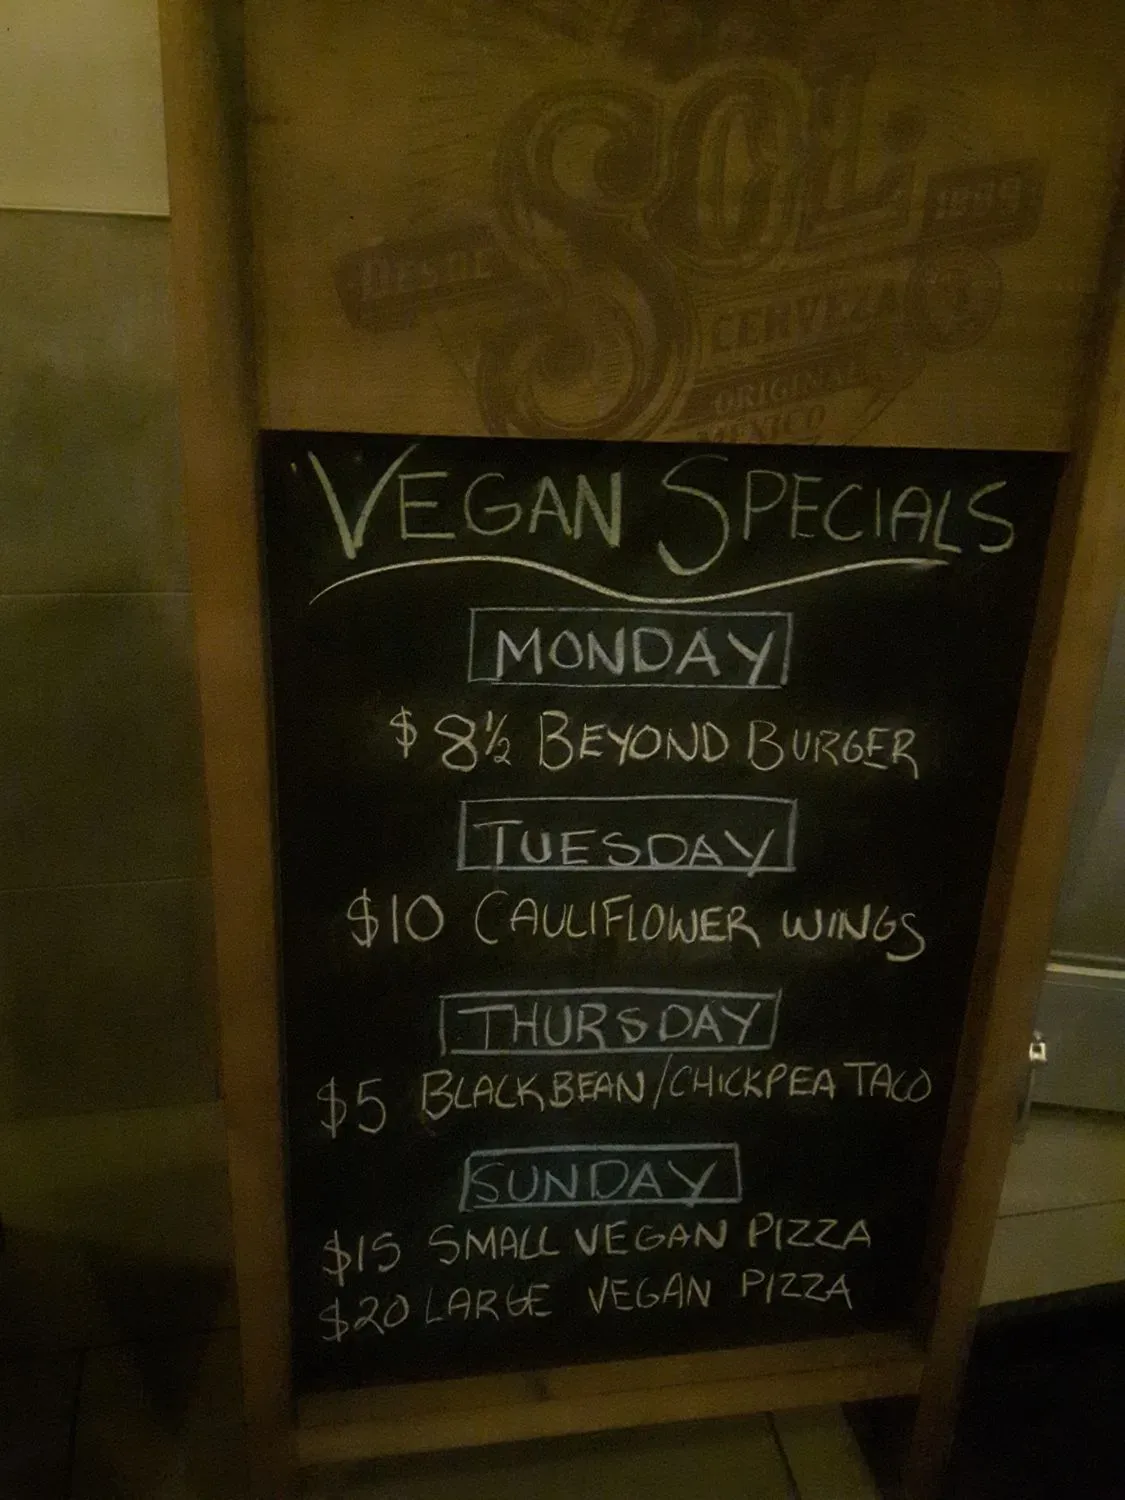 SOL
DESDE 1899
CERVEZA
ORIGINAL
MEXICO
VEGAN SPECIALS
MONDAY
$8½ BEYOND BURGER
TUESDAY
$10 CAULIFLOWER WINGS
THURSDAY
$5 BLACK BEAN/CHICKPEA TACO
SUNDAY
$15 SMALL VEGAN PIZZA
$20 LARGE VEGAN PIZZA